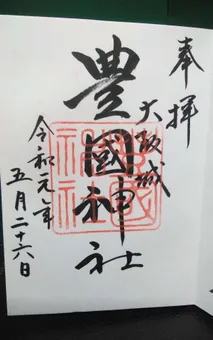 奉拝
大阪城
豊國神社
令和元年
五月二十六日